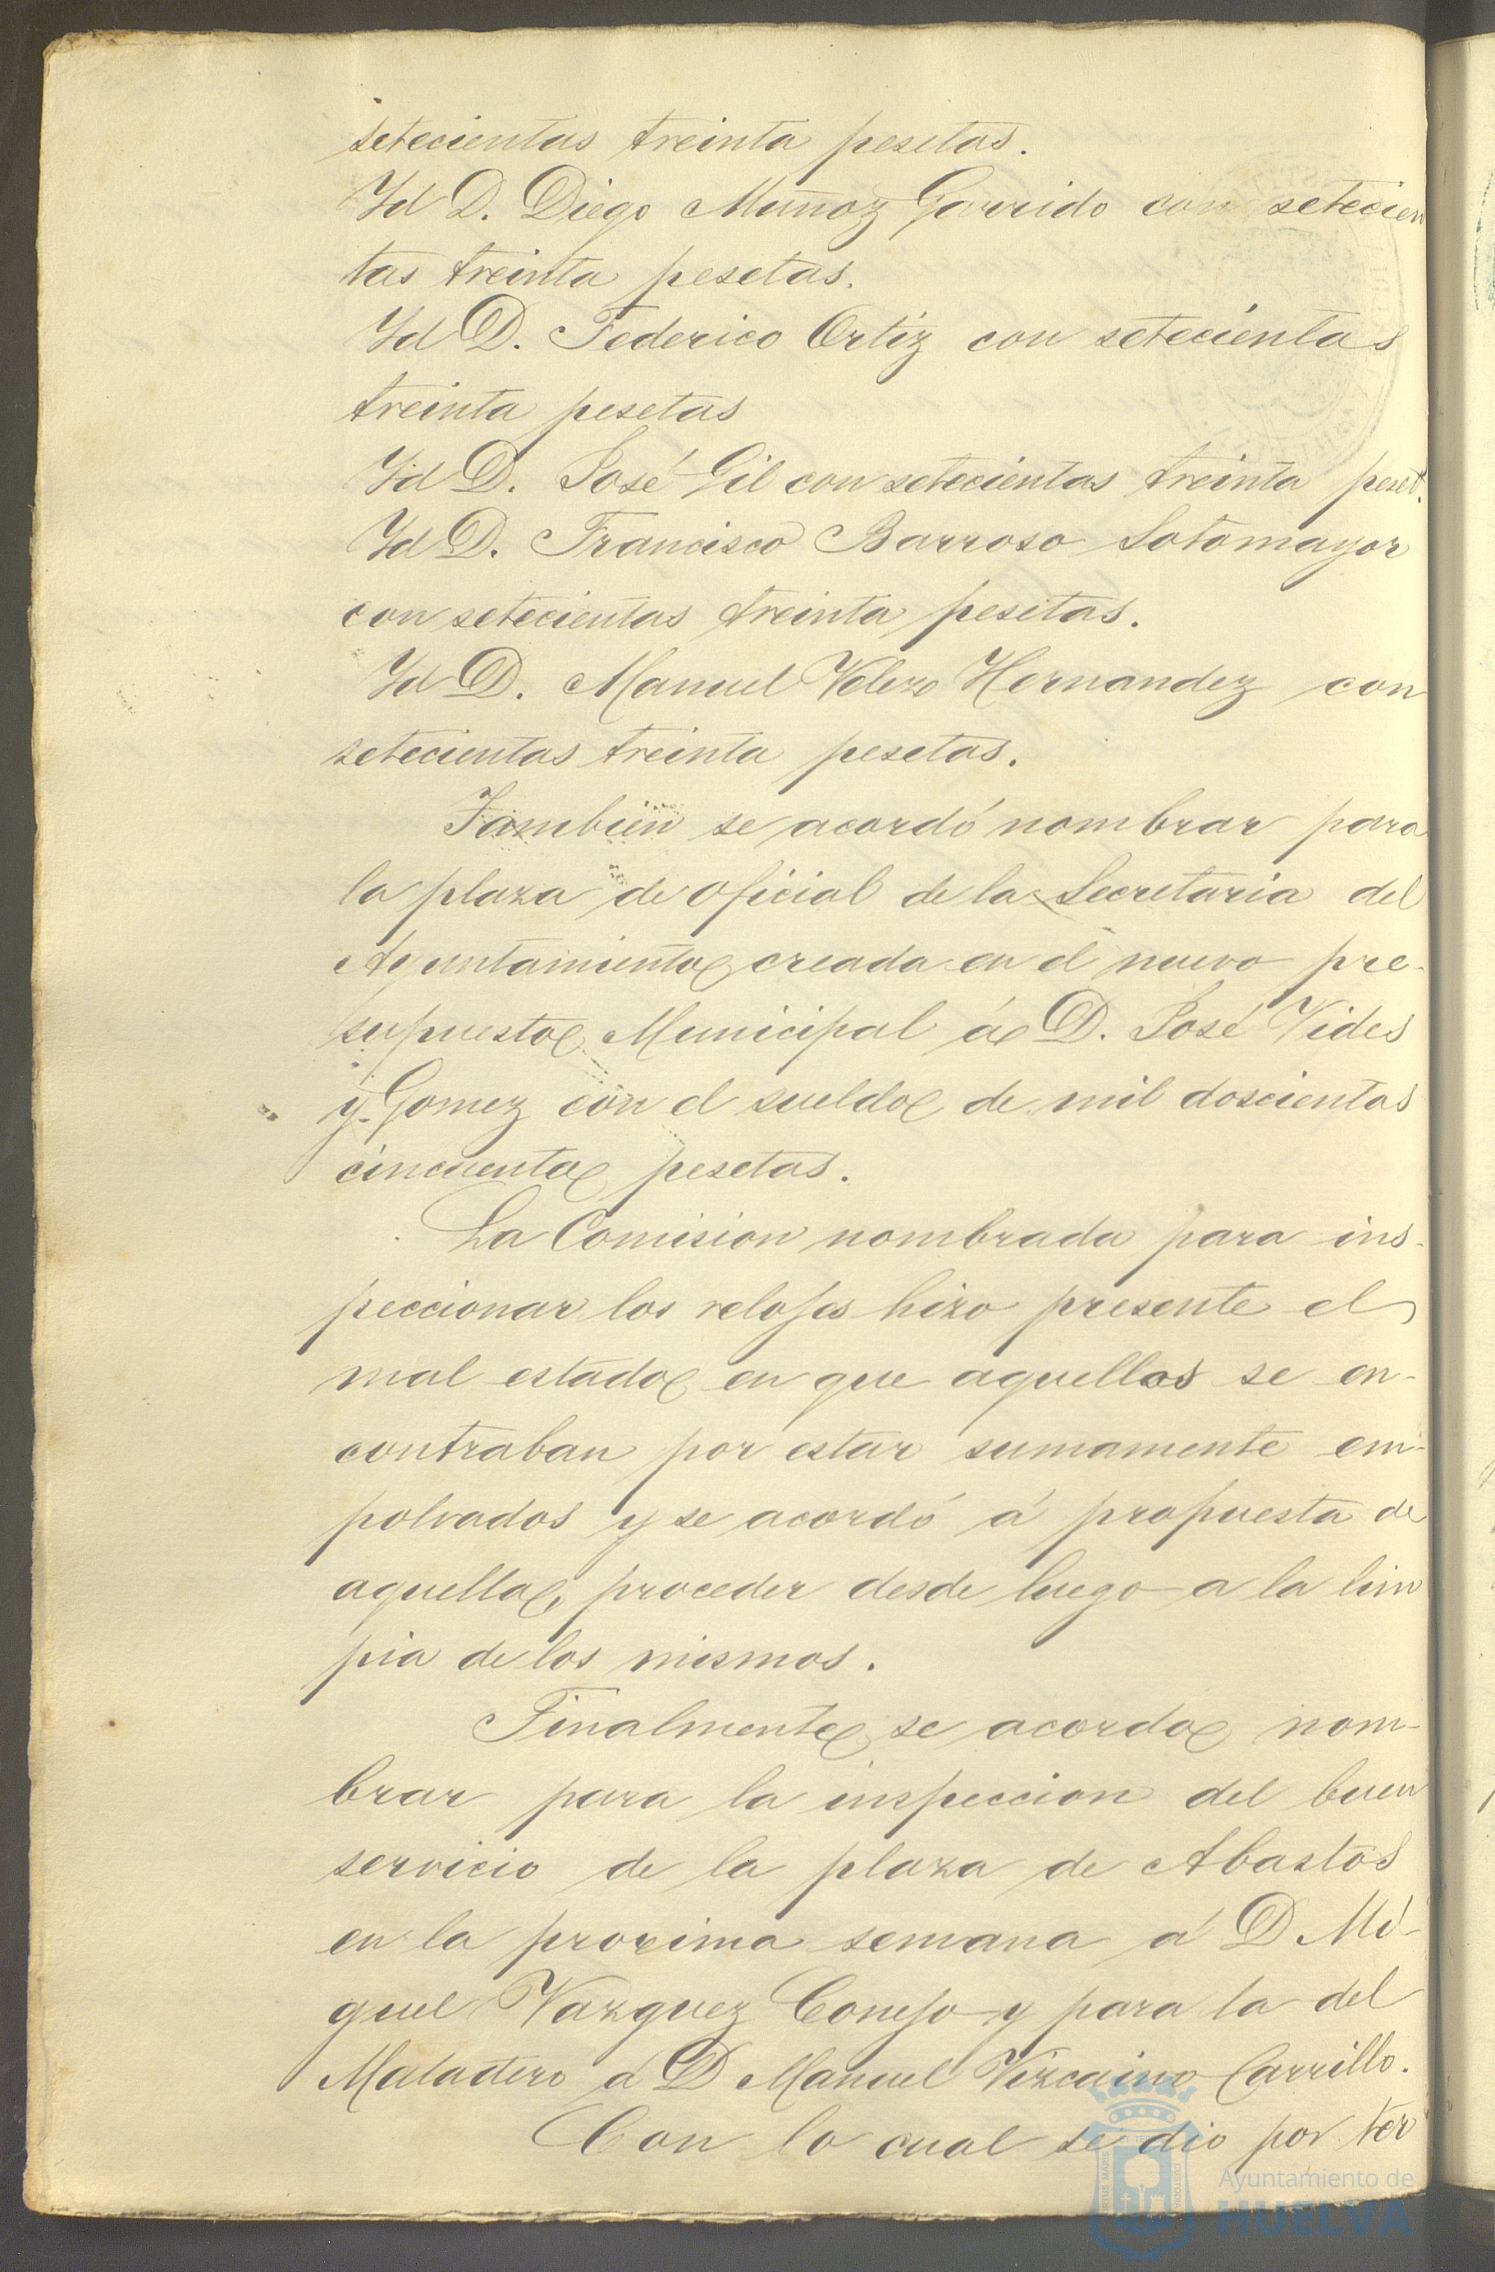 setecientas treinta pesetas.
Yd D. Diego Muñoz Garrido con setecien
tas treinta pesetas.
Yd D. Federico Ortiz con setecientas
treinta pesetas
Yd D. José Gil con setecientas treinta peset.
Yd D. Francisco Barroso Sotomayor
con setecientas treinta pesetas.
Yd D. Manuel Hernandez con
setecientas treinta pesetas.
Tambien se acordó nombrar para
la plaza de oficial de la Secretaria del
Ayuntamiento creada en el nuevo pre-
supuesto Municipal á D. José Vides
y Gomez con el sueldo de mil doscientas
cincuenta pesetas.
La Comision nombrada para ins-
peccionar los relojes hizo presente el
mal estado en que aquellos se en-
contraban por estar sumamente em-
polvados y se acordó á propuesta de
aquella, proceder desde luego a la lim
pia de los mismos.
Finalmente se acordo nom-
brar para la inspeccion del buen
servicio de la plaza de Abastos
en la proxima semana á D Mi-
guel Vazquez Conejo y para la del
Matadero á D Manuel Vizcaino Carrillo.
Con lo cual se dio por ter
Ayuntamiento de
HUELVA